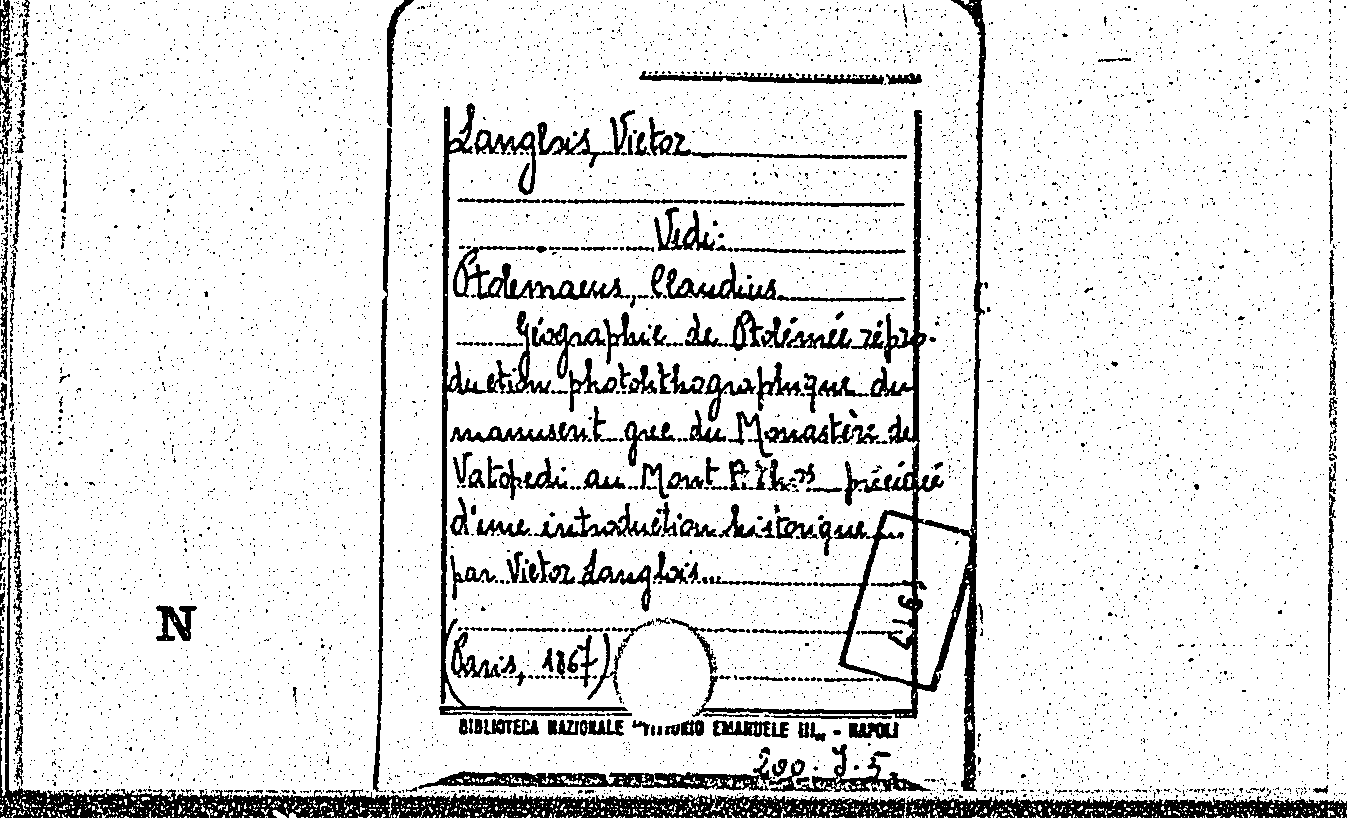 Langlois, Victor
Vedi:
Ptolemaeus, Claudius
Géographie de Ptolémée répro-
duction photolithographique du
manuscrit grec du Monastère de
Vatopedi au Mont Athos précédé
d'une introduction historique
par Victor Langlois...
(Paris, 1867)
N
BIBLIOTECA NAZIONALE "VITTORIO EMANUELE III„ - NAPOLI
200. J. 5.